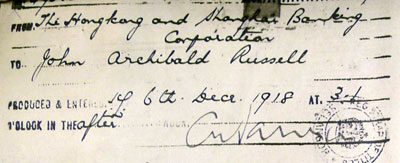 FROM The Hongkong and Shanghai Banking
Corporation
TO John Archibald Russell
PRODUCED & ENTERED 6th. Dece. 1918 AT.
O'CLOCK IN THE after NOON.